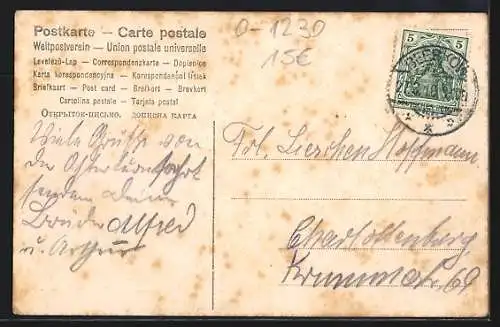 Postkarte — Carte postale
Weltpostverein — Union postale universelle
Levelező-Lap — Correspondenzkarte — Dopisnice
Karta korespondencyjna — Korespondenční lístek
Briefkaart — Post card — Brefkort — Brevkort
Cartolina postale — Tarjeta postal
Открытое письмо. Дописна карта
0-1230
15€
5 5
BEESKOW
Viele Grüße von
der Osterturnfahrt
senden deine
Brüder Alfred
u. Arthur
Frl. Lieschen Hoffmann
Charlottenburg
Krummestr. 69